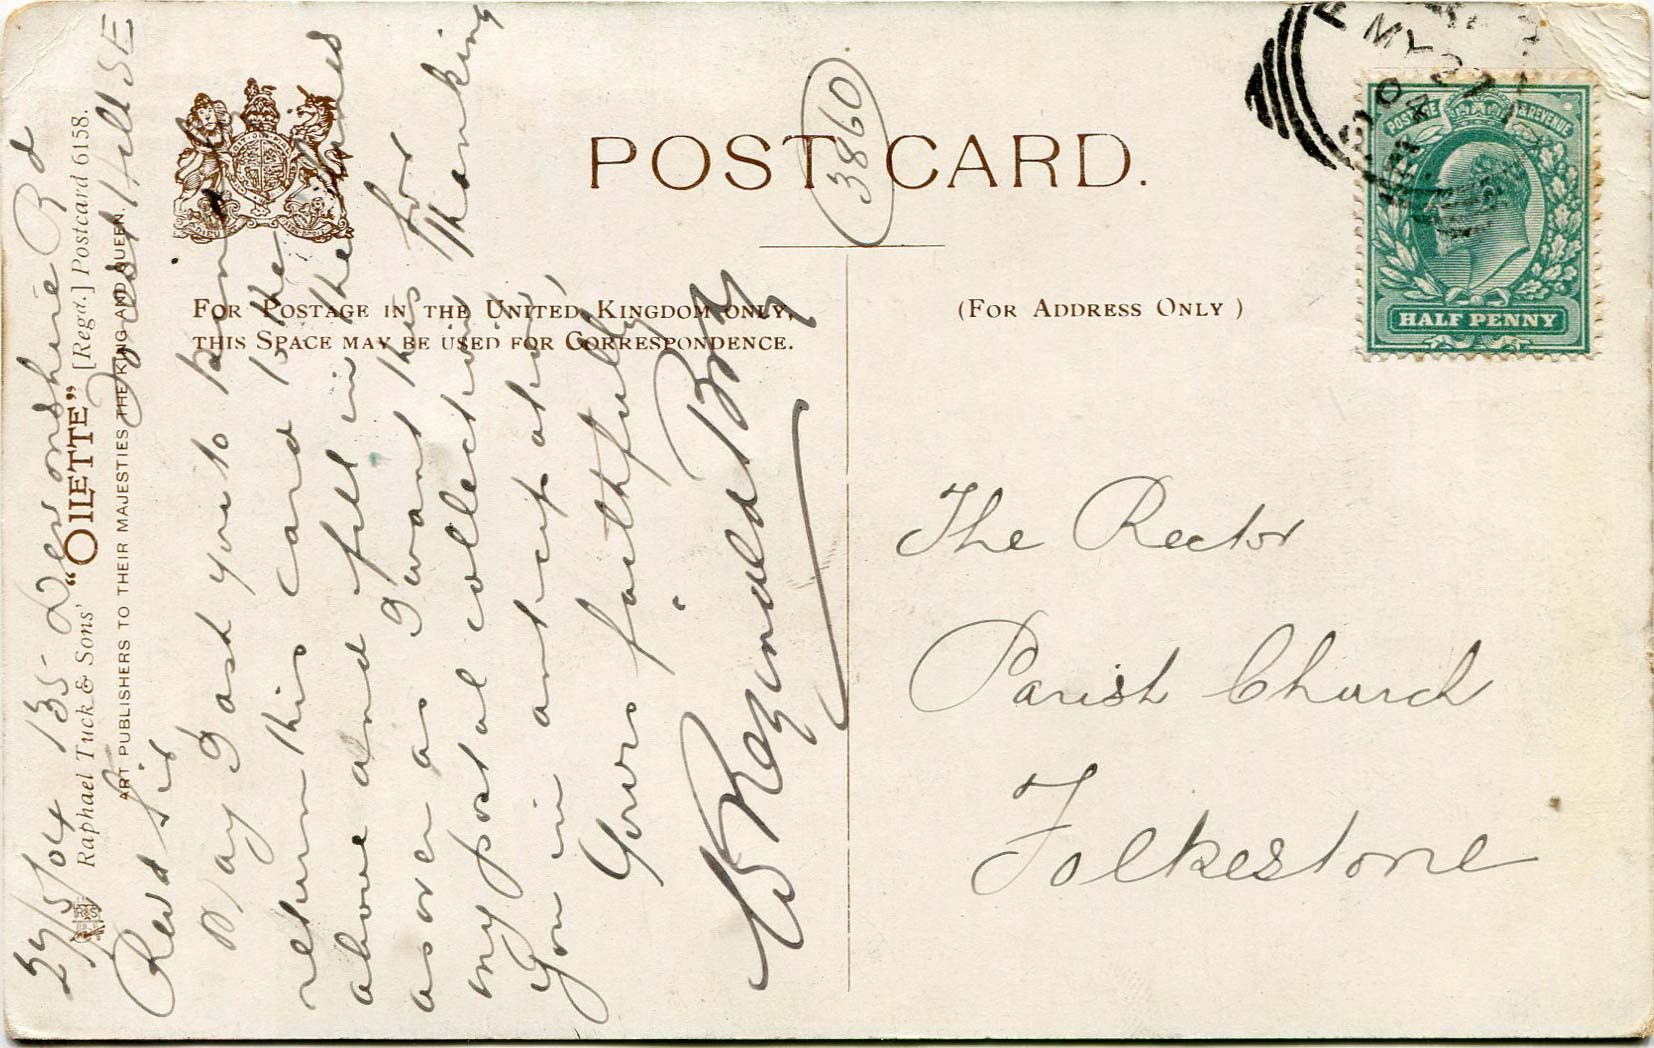 POST CARD.
3860
FOR POSTAGE IN THE UNITED KINGDOM ONLY,
THIS SPACE MAY BE USED FOR CORRESPONDENCE.
(FOR ADDRESS ONLY)
POSTAGE & REVENUE
HALF PENNY
MY 27
04
Raphael Tuck & Sons' "OILETTE" [Regd.] Postcard 6158.
ART PUBLISHERS TO THEIR MAJESTIES THE KING AND QUEEN.
27/5/04 135 Devonshire Rd
Forest Hill SE
Revd Sir
May I ask you to kindly
return this card to the
above and fill in the
as over as I want this for
my postal collection Thanking
you in anticipation,
Yours faithfully
Reginald
The Rector
Parish Church
Folkestone